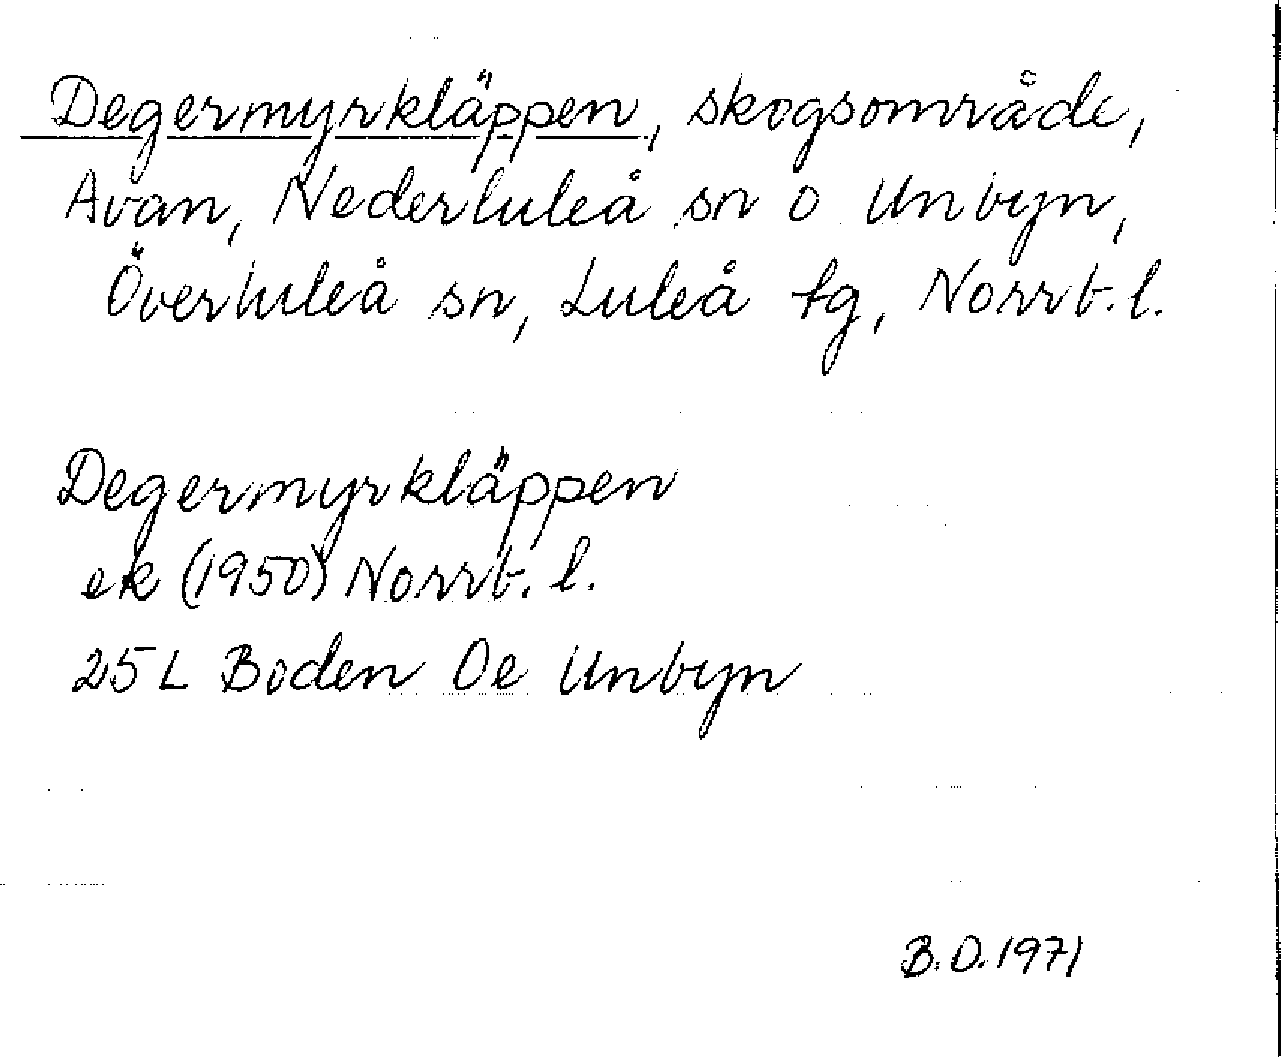 Degermyrkläppen, skogsområde,
Avan, Nederluleå sn o Unbyn,
Överluleå sn, Luleå tg, Norrb. l.
Degermyrkläppen
ek (1950) Norrb. l.
25 L Boden Oe Unbyn
B.D. 1971